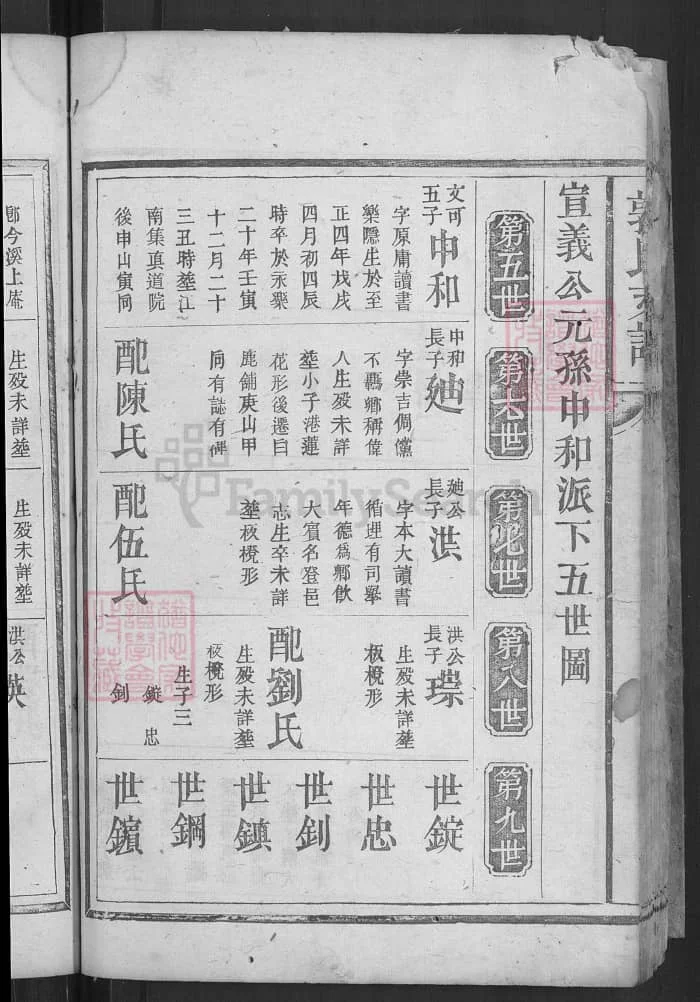 宣義公元孫申和派下五世圖
第五世
文可
五子
申和
字原庸讀書
樂隱生於至
正四年戊戌
四月初四辰
時卒於永樂
二十年壬寅
十二月二十
三丑時塟江
南集真道院
後申山寅向
第六世
申和
長子
廸
字崇吉倜儻
不羈鄉稱偉
人生殁未詳
塟小子港蓮
花形後遷白
鹿鋪庚山甲
向有誌有碑
配陳氏
第七世
廸公
長子
洪
字本大讀書
循理有司舉
年德爲鄉飲
大賓名登邑
志生卒未詳
塟板櫈形
配伍氏
第八世
洪公
長子
璟
生殁未詳塟
板櫈形
配劉氏
生殁未詳塟
板櫈形
生子三
錠 忠
釗
第九世
世錠
世忠
世釗
世鎮
世鋼
世鑌
鄉今溪上庵
生殁未詳塟
生殁未詳塟
洪公
英
FamilySearch